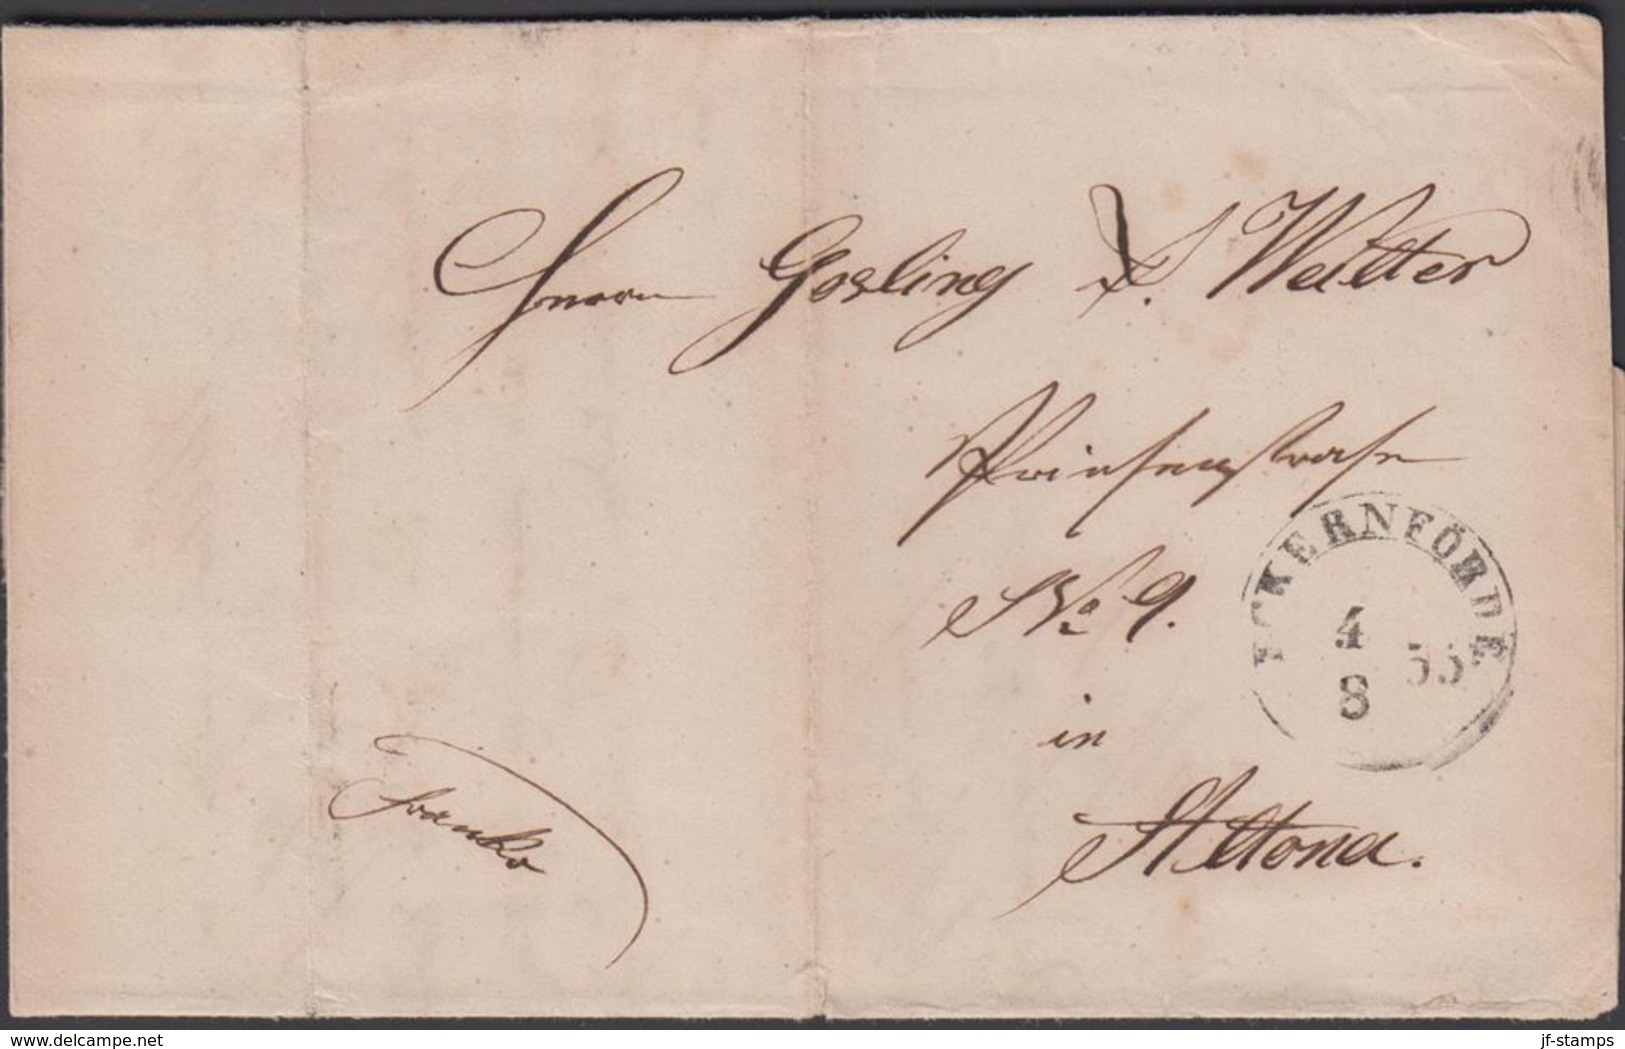 Herrn Gosling & Walter
Prinsenstrasse
No 9.
in
Altona.
Franko
ECKERNFÖRDE
4
8
55
www.delcampe.net
jf-stamps